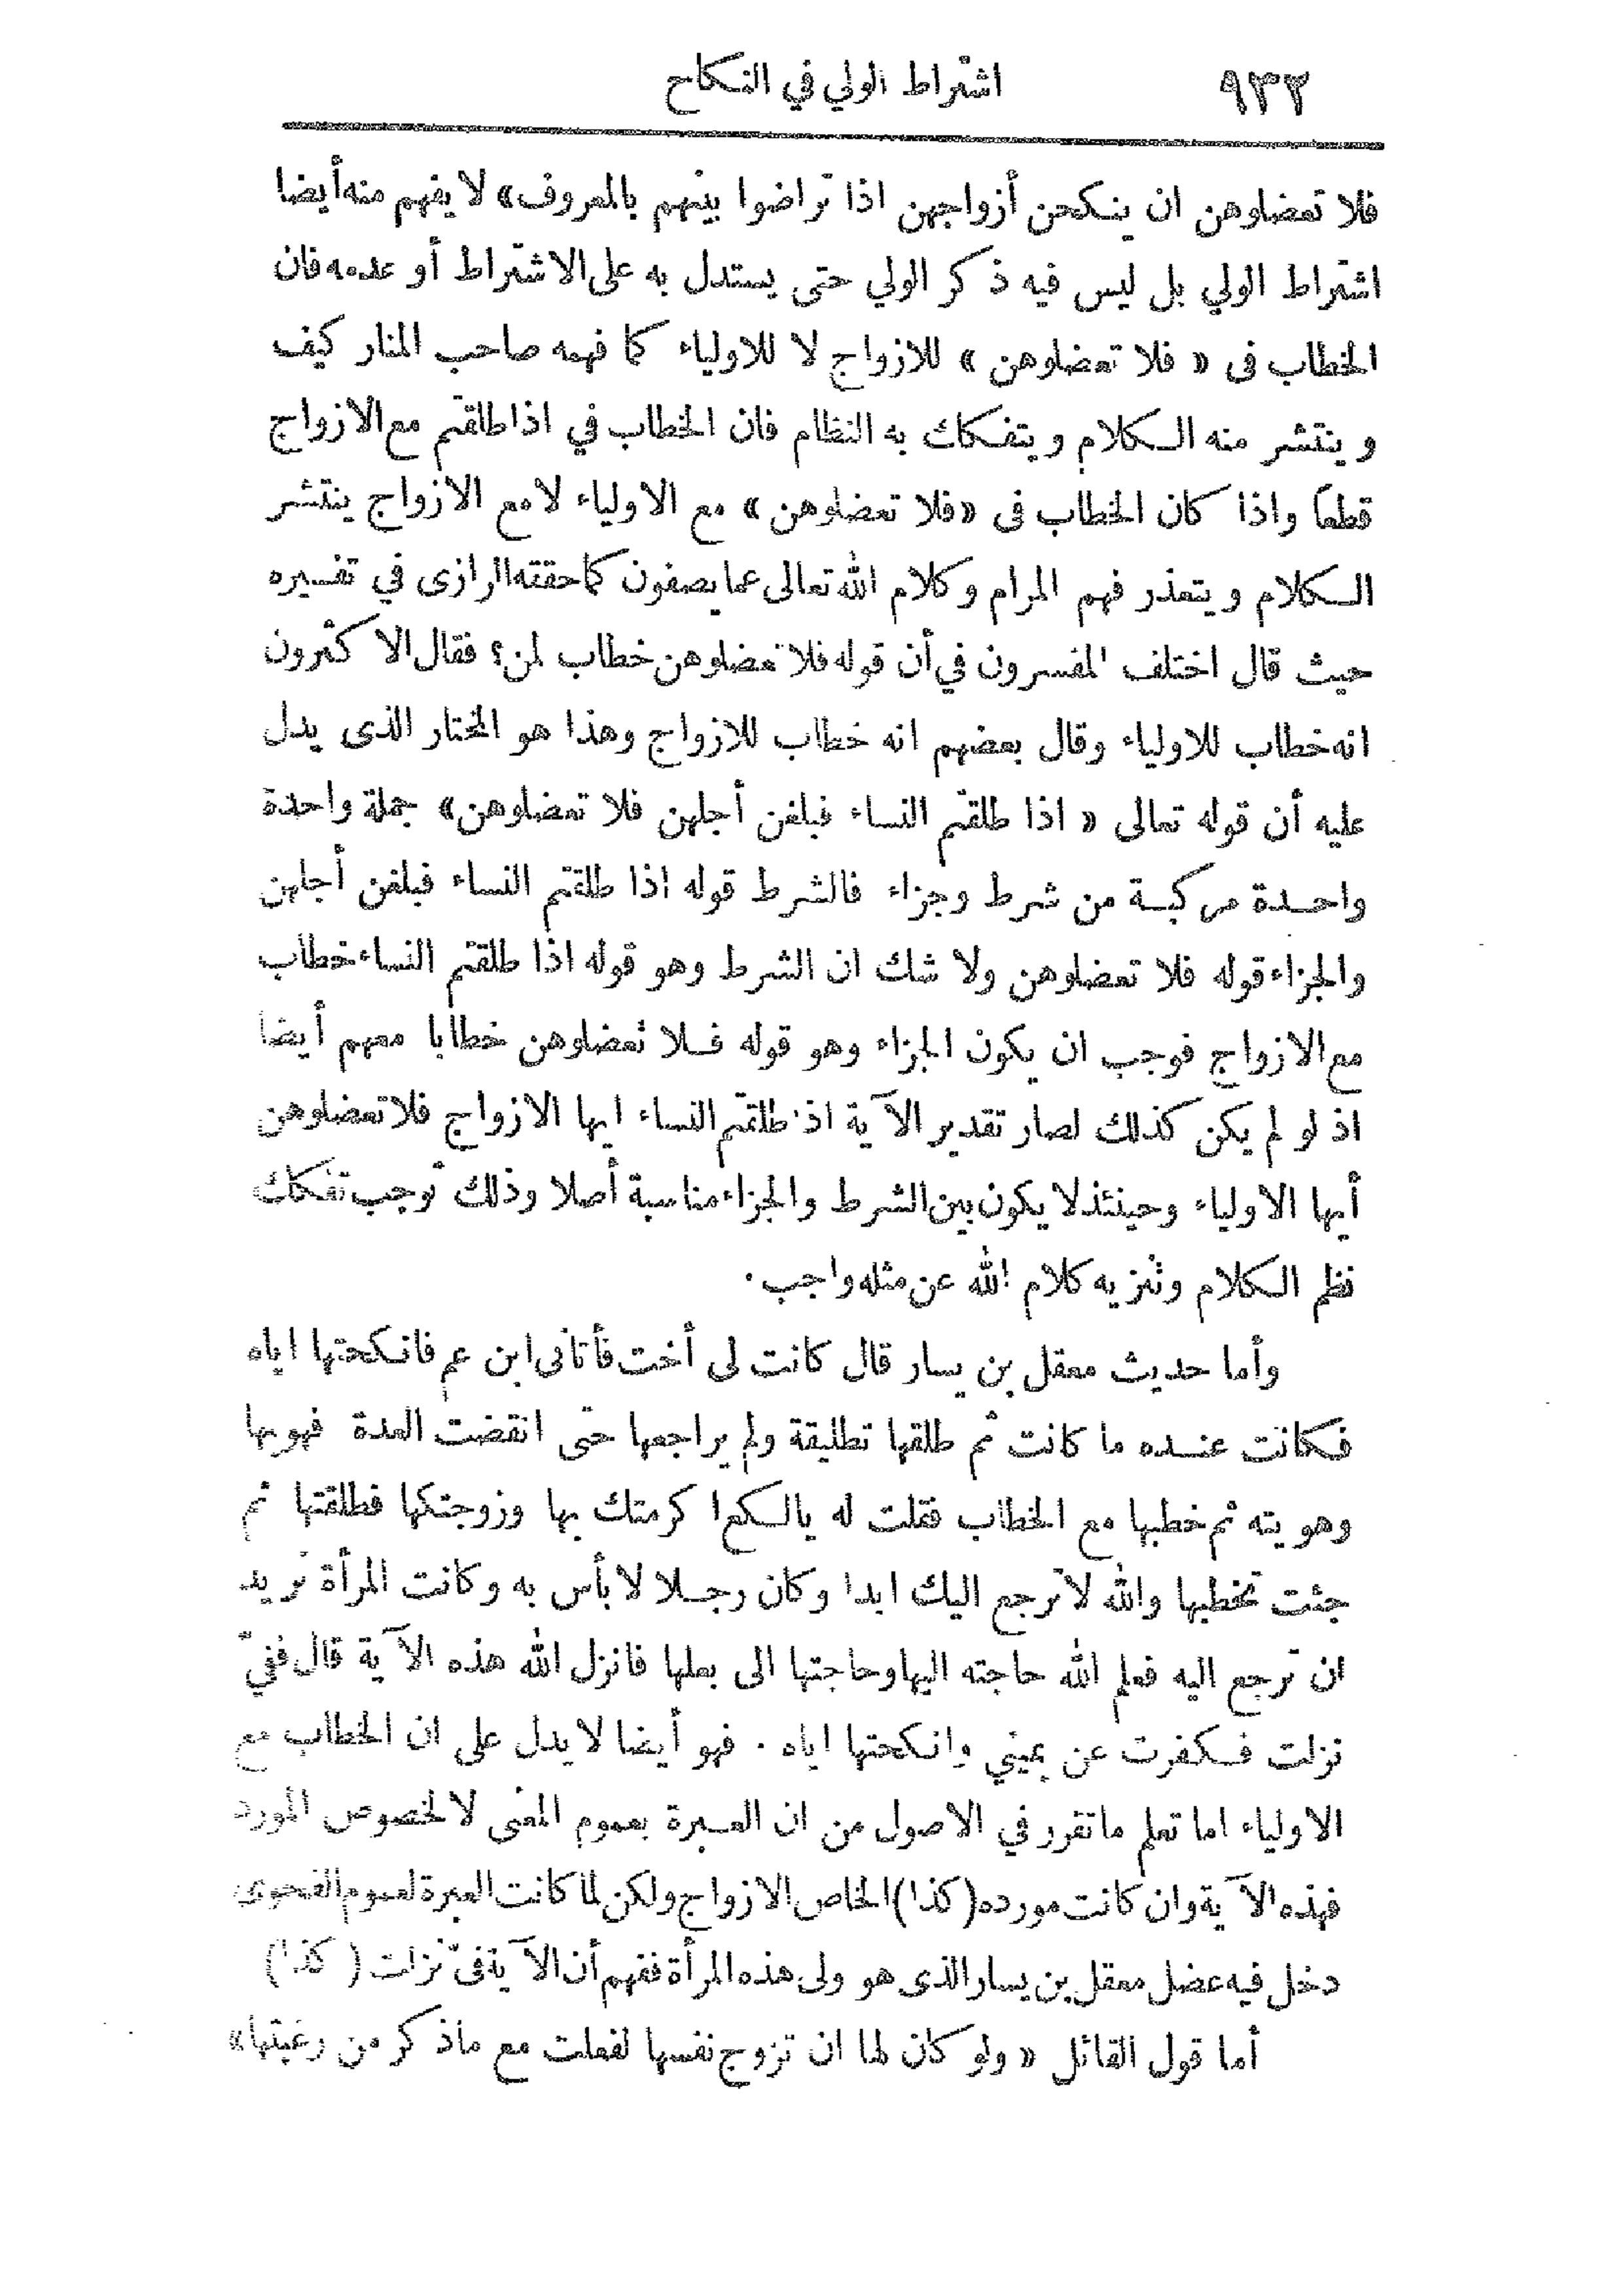 ٩٣٢ اشتراط الولي في النكاح
فلا تعضلوهن ان ينكحن أزواجهن اذا تراضوا بينهم بالمعروف» لا يفهم منه أيضا
اشتراط الولي بل ليس فيه ذكر الولي حتى يستدل به على الاشتراط أو عدمه فان
الخطاب في « فلا تعضلوهن » للازواج لا للاولياء كما فهمه صاحب المنار كيف
وينتشر منه الكلام ويتفكك به النظام فان الخطاب في اذا طلقتم مع الازواج
قطعاً واذا كان الخطاب في «فلا تعضلوهن» مع الاولياء لا مع الازواج ينتشر
الكلام ويتعذر فهم المرام وكلام الله تعالى عما يصفون كما حققته الرازى في تفسيره
حيث قال اختلف المفسرون في أن قوله فلا تعضلوهن خطاب لمن؟ فقال الاكثرون
انه خطاب للاولياء وقال بعضهم انه خطاب للازواج وهذا هو المختار الذى يدل
عليه أن قوله تعالى « اذا طلقتم النساء فبلغن أجلهن فلا تعضلوهن» جملة واحدة
واحدة مركبة من شرط وجزاء فالشرط قوله اذا طلقتم النساء فبلغن أجلهن
والجزاء قوله فلا تعضلوهن ولا شك ان الشرط وهو قوله اذا طلقتم النساء خطاب
مع الازواج فوجب ان يكون الجزاء وهو قوله فلا تعضلوهن خطابا معهم أيضا
اذ لو لم يكن كذلك لصار تقدير الآية اذا طلقتم النساء ايها الازواج فلا تعضلوهن
أيها الاولياء وحينئذ لا يكون بين الشرط والجزاء مناسبة أصلا وذلك توجب تفكك
نظم الكلام وتنزيه كلام الله عن مثله واجب.
وأما حديث معقل بن يسار قال كانت لى أخت فأتانى ابن عم فانكحتها اياه
فكانت عنده ما كانت ثم طلقها تطليقة ولم يراجعها حتى انقضت العدة فهويها
وهويته ثم خطبها مع الخطاب فقلت له يالكع اكرمتك بها وزوجتكها فطلقتها ثم
جئت تخطبها والله لا ترجع اليك ابدا وكان رجلا لا بأس به وكانت المرأة تريد
ان ترجع اليه فعلم الله حاجته اليها وحاجتها الى بعلها فانزل الله هذه الآية قال ففيّ
نزلت فكفرت عن يميني وانكحتها اياه . فهو أيضا لا يدل على ان الخطاب مع
الاولياء اما تعلم ما تقرر في الاصول من ان العبرة بعموم المعنى لا لخصوص المورد
فهذه الآية وان كانت مورده (كذا) الخاص الازواج ولكن لما كانت العبرة لعموم الفحوى
دخل فيه عضل معقل بن يسار الذى هو ولى هذه المرأة ففهم أن الآية فىّ نزلت (كذا)
أما قول القائل « ولو كان لها ان تزوج نفسها لفعلت مع ماذكر من رغبتها»